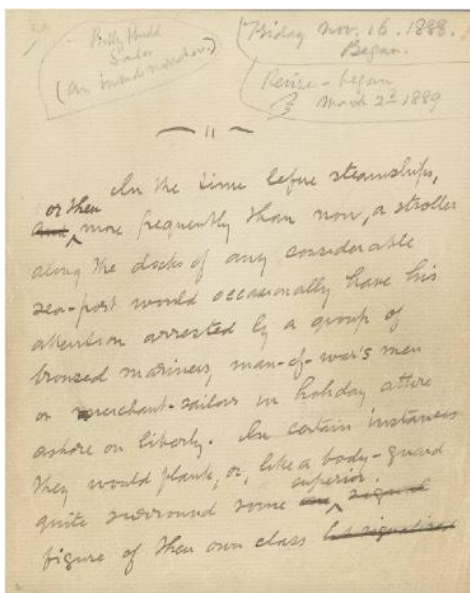 Billy Budd
Sailor
(An inside narrative.)
Friday Nov. 16. 1888.
Began.
Revise - began
March 2d 1889
In the time before steamships,
or then
and, more frequently than now, a stroller
along the docks of any considerable
sea-port would occasionally have his
attention arrested by a group of
bronzed mariners, man-of-war's men
or merchant-sailors in holiday attire
ashore on liberty. In certain instances
they would flank, or, like a body-guard
superior
quite surround some signal
figure of their own class